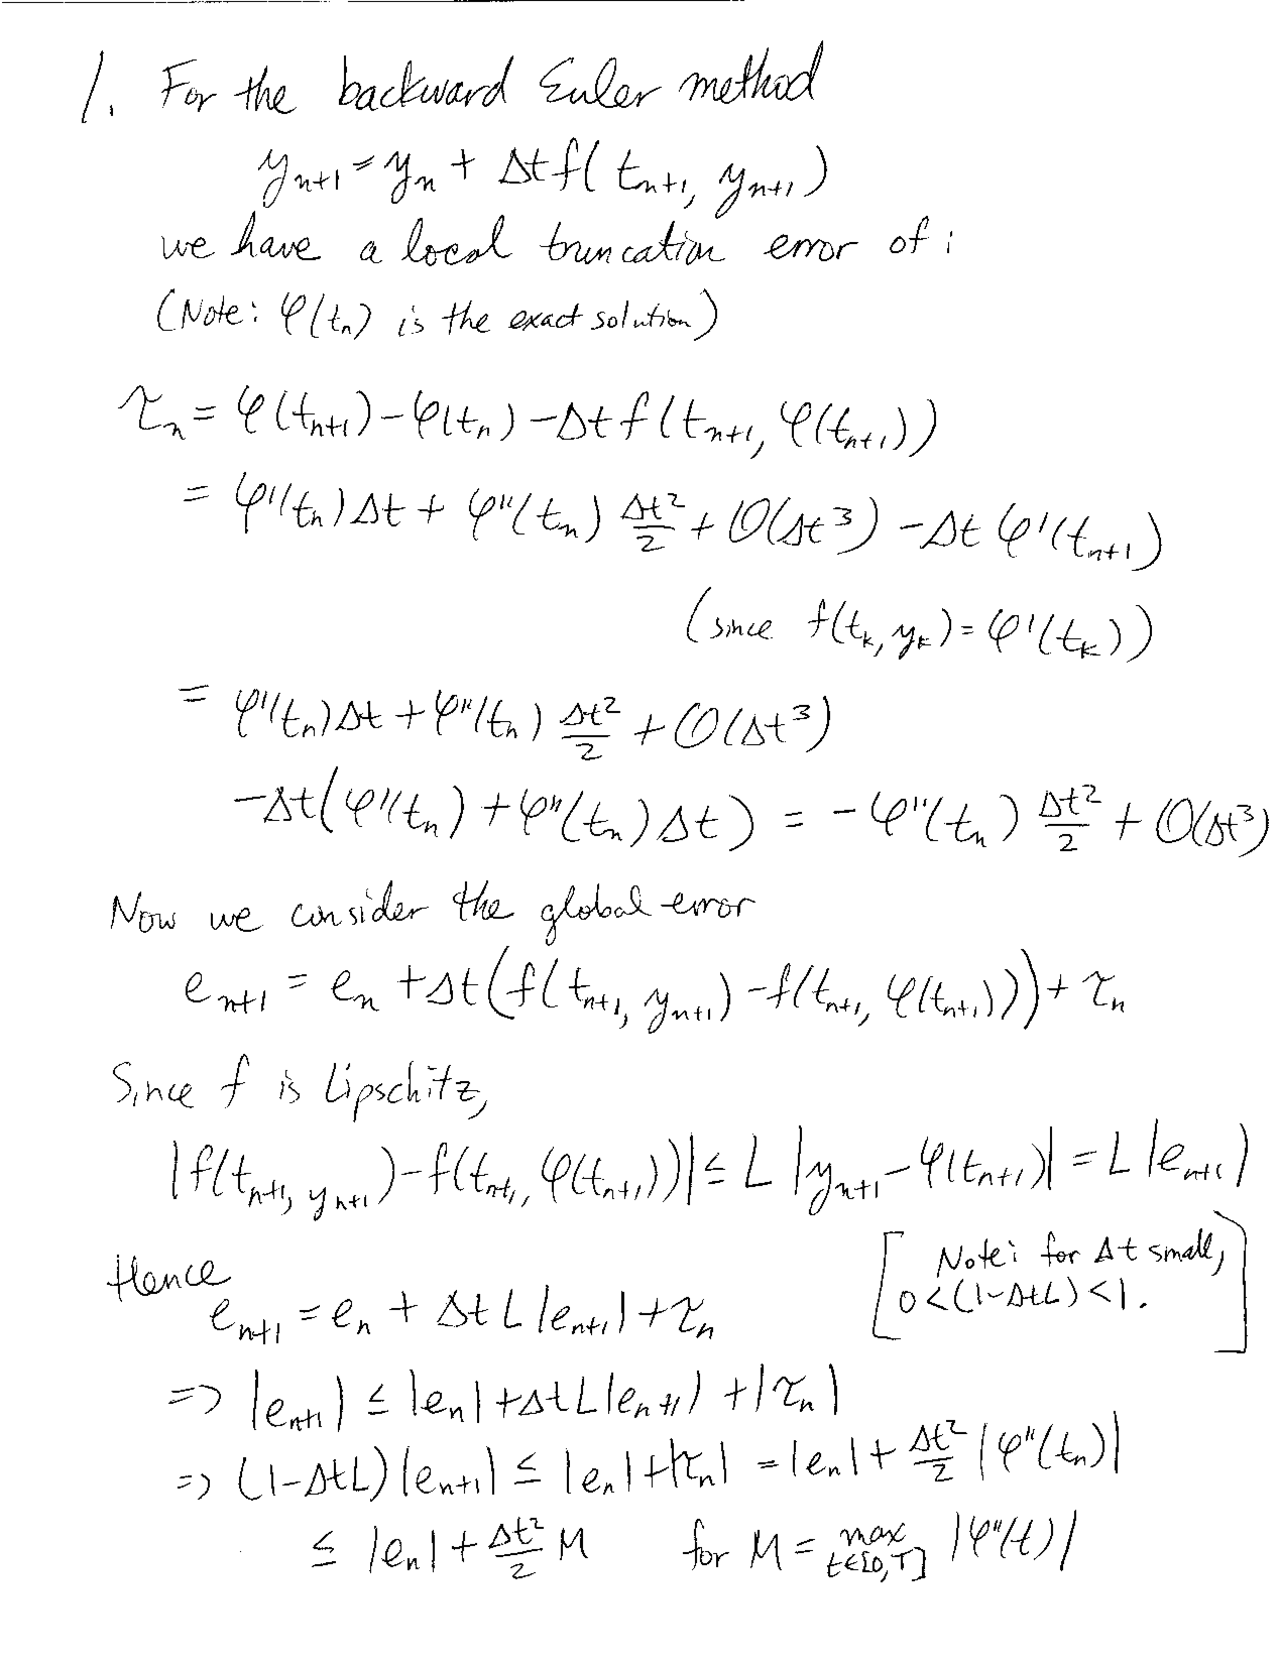 1. For the backward Euler method
y_{n+1} = y_n + Δt f(t_{n+1}, y_{n+1})
we have a local truncation error of:
(Note: φ(t_n) is the exact solution)
τ_n = φ(t_{n+1}) - φ(t_n) - Δt f(t_{n+1}, φ(t_{n+1}))
= φ'(t_n)Δt + φ''(t_n) Δt²/2 + O(Δt³) - Δt φ'(t_{n+1})
(since f(t_k, y_k) = φ'(t_k))
= φ'(t_n)Δt + φ''(t_n) Δt²/2 + O(Δt³)
-Δt(φ'(t_n) + φ''(t_n)Δt) = -φ''(t_n) Δt²/2 + O(Δt³)
Now we consider the global error
e_{n+1} = e_n + Δt(f(t_{n+1}, y_{n+1}) - f(t_{n+1}, φ(t_{n+1}))) + τ_n
Since f is Lipschitz,
|f(t_{n+1}, y_{n+1}) - f(t_{n+1}, φ(t_{n+1}))| ≤ L |y_{n+1} - φ(t_{n+1})| = L |e_{n+1}|
Hence
[Note: for Δt small,
0 < (1-ΔtL) < 1.]
e_{n+1} = e_n + Δt L |e_{n+1}| + τ_n
=> |e_{n+1}| ≤ |e_n| + Δt L |e_{n+1}| + |τ_n|
=> (1-ΔtL) |e_{n+1}| ≤ |e_n| + |τ_n| = |e_n| + Δt²/2 |φ''(t_n)|
≤ |e_n| + Δt²/2 M for M = max_{t∈[0,T]} |φ''(t)|